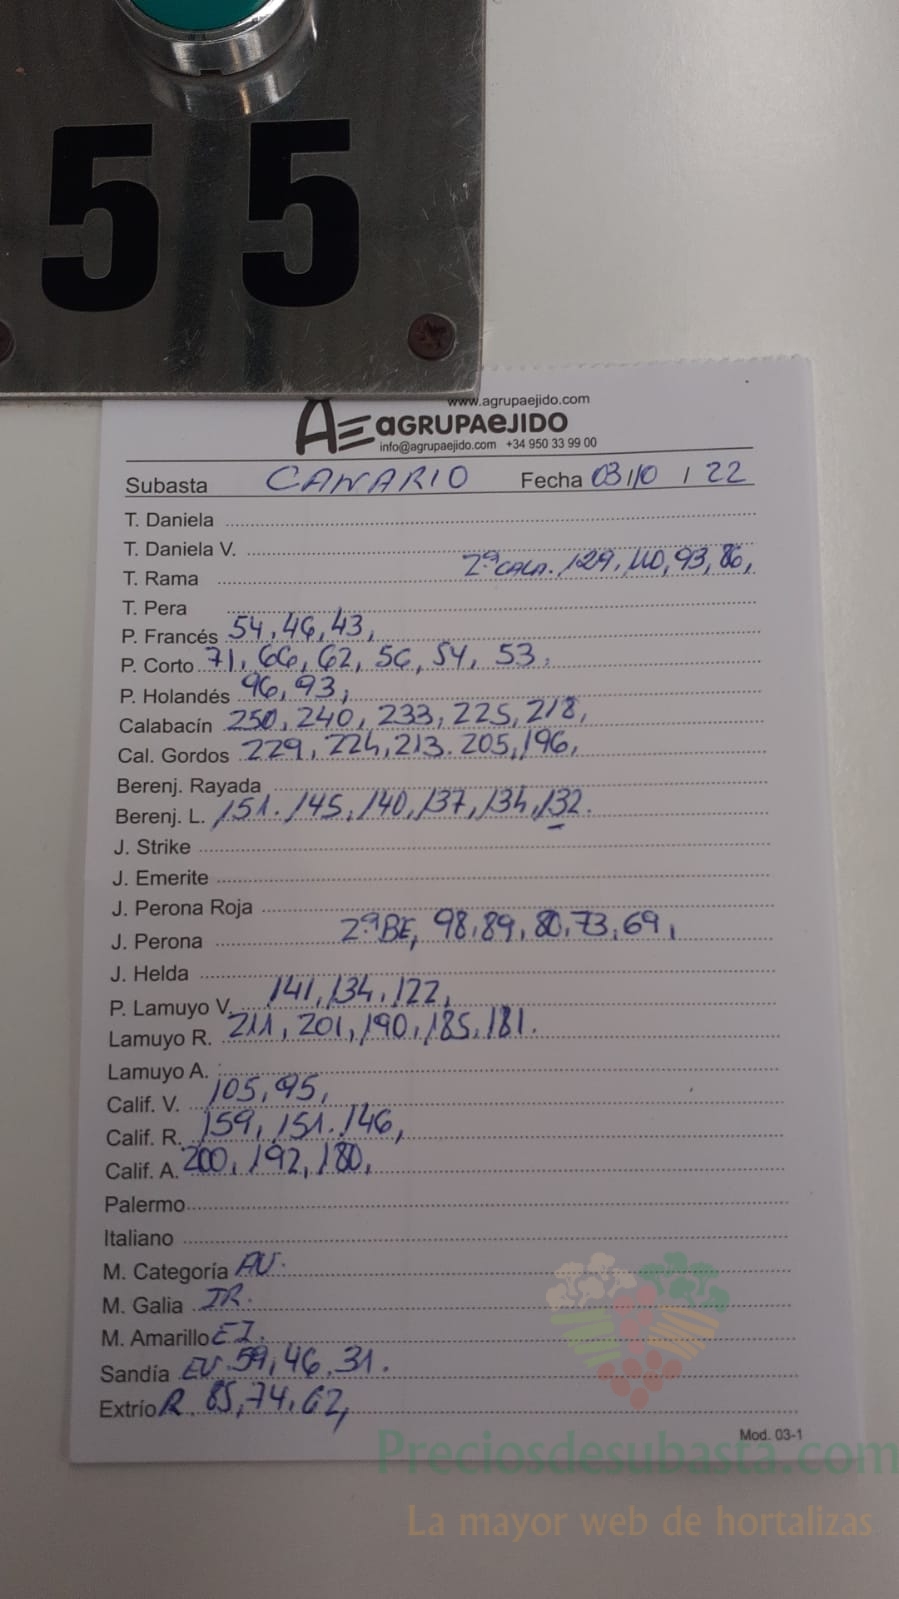 55
www.agrupaejido.com
AE aGRUPAeJIDO
info@agrupaejido.com +34 950 33 99 00
Subasta CANARIO Fecha 03/10 / 22
T. Daniela
T. Daniela V.
T. Rama 2ª CALA. 129, 110, 93, 86,
T. Pera
P. Francés 54, 46, 43,
P. Corto 71, 66, 62, 56, 54, 53,
P. Holandés 96, 93,
Calabacín 250, 240, 233, 225, 218,
Cal. Gordos 229, 224, 213. 205, 196,
Berenj. Rayada
Berenj. L. 151. 145, 140, 137, 134, 132.
J. Strike
J. Emerite
J. Perona Roja
J. Perona 2ª BE, 98, 89, 80, 73, 69,
J. Helda
P. Lamuyo V. 141, 134, 122,
Lamuyo R. 211, 201, 190, 185, 181.
Lamuyo A.
Calif. V. 105, 95,
Calif. R. 159, 151. 146,
Calif. A. 200, 192, 180,
Palermo
Italiano
M. Categoría
M. Galia
M. Amarillo
Sandía 59, 46, 31.
Extrío R. 85, 74, 62,
Mod. 03-1
Preciosdesubasta.com
La mayor web de hortalizas